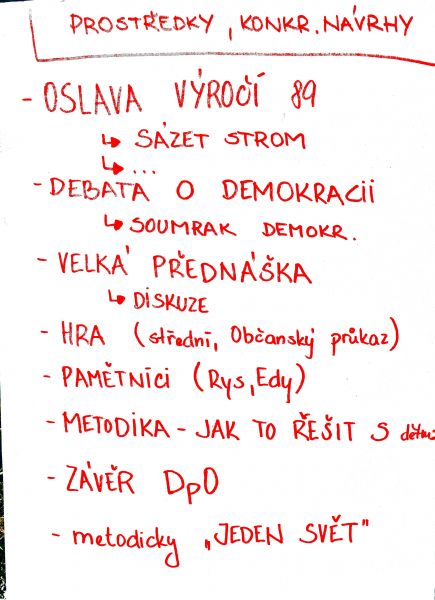 PROSTŘEDKY, KONKR. NÁVRHY
- OSLAVA VÝROČÍ 89
↳ SÁZET STROM
↳ ...
- DEBATA O DEMOKRACII
↳ SOUMRAK DEMOKR.
- VELKÁ PŘEDNÁŠKA
↳ DISKUZE
- HRA (střední, Občanský průkaz)
- PAMĚTNÍCI (Rys, Edy)
- METODIKA - JAK TO ŘEŠIT S dětmi
- ZÁVĚR DpO
- metodicky „JEDEN SVĚT"